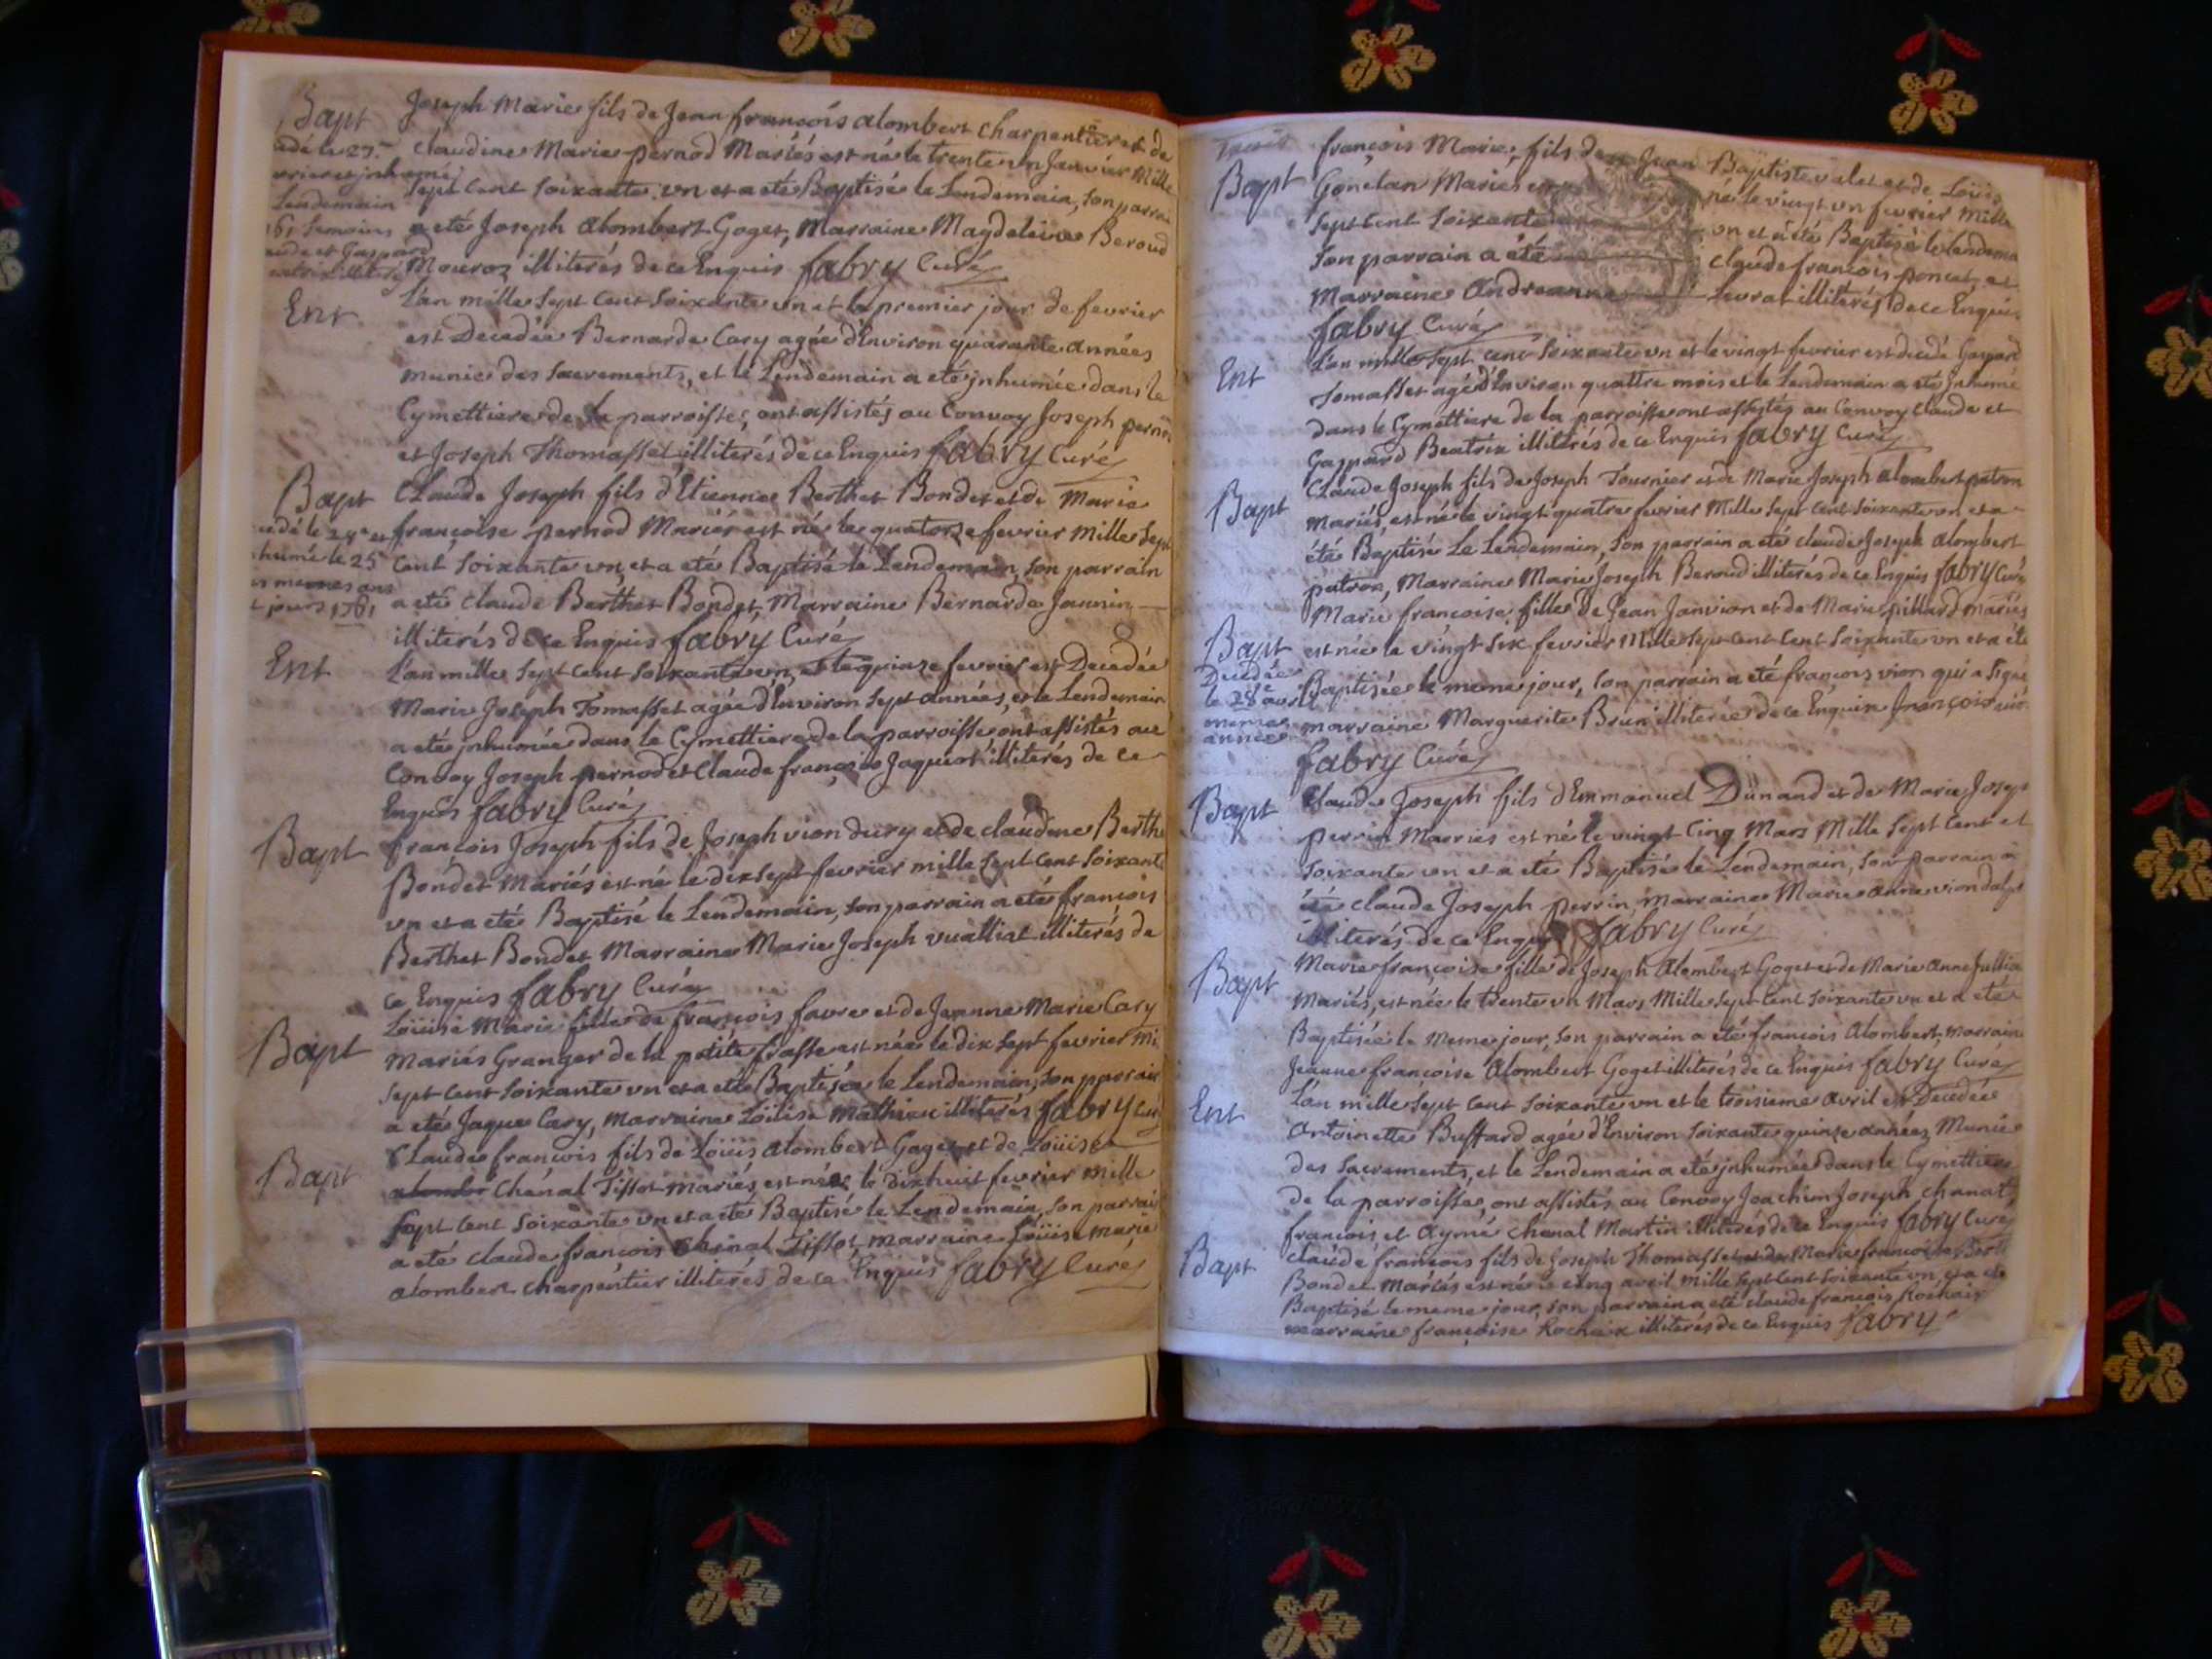 Bapt
Joseph Marie fils de Jean françois alombert charpentier et de
claudine Marie pernod Mariés est né le trente un Janvier Mille
Sept Cent Soixante un et a eté Baptisé le Lendemain, son parrain
a eté Joseph alombert Goget, Marraine Magdeleine Beroud
Mouroz illiterés de ce Enquis fabry Curé
Lendemain
Ent
L'an mille Sept Cent Soixante un et le premier jour de fevrier
est Decedée Bernarde Cary agée d'Environ quarante années
munie des Sacrements, et le Lendemain a eté jnhumée dans le
Cymettiere de la parroisse, ont assistés au Convoy Joseph pernod
et Joseph Thomasset illiterés de ce Enquis fabry Curé
Bapt
Claude Joseph fils d'Etienne Berthet Bondet et de Marie
françoise pernod Mariés est né le quatorze fevrier Mille Sept
Cent Soixante un, et a eté Baptisé le Lendemain, son parrain
a eté claude Berthet Bondet, Marraine Bernarde Jannin
illiterés de ce Enquis fabry Curé
humé le 25
1761
Ent
L'an mille Sept Cent Soixante un, et le quinze fevrier est Decedée
Marie Joseph Tomasset agée d'Environ Sept années, et le Lendemain
a eté jnhumée dans le Cymettiere de la parroisse ont assistés au
Convoy Joseph pernod et Claude françois Jaquiot illiterés de ce
Enquis fabry Curé
Bapt
françois Joseph fils de Joseph vion dury et de claudine Berthe
Bondet Mariés est né le dix Sept fevrier mille Sept Cent Soixante
un et a eté Baptisé le Lendemain, son parrain a eté françois
Berthet Bondet Marraine Marie Joseph vualliat illiterés de
ce Enquis fabry Curé
Bapt
Loüise Marie fille de françois favre et de Jeanne Marie Cary
Mariés Granger de la petite frasse est née le dix Sept fevrier Mi
Sept Cent Soixante un et a eté Baptisée le Lendemain, son parrain
a eté Jaque Cary, Marraine Loüise Mathieu illiterés fabry Curé
Bapt
Claude françois fils de Loüis alombert Goget et de Loüise
Chénal Tissot mariés est né le Dixhuit fevrier Mille
Sept Cent Soixante un et a eté Baptisé le Lendemain, son parrain
a eté claude françois Chenal Tissot, marraine Loüise marie
alombert charpentier illiterés de ce Enquis fabry Curé
Bapt
françois Marie, fils de Jean Baptiste valet et de Loüise
Gonelan Mariés est né le vingt un fevrier Mille
Sept Cent Soixante un et a eté Baptisé le Lendema
Son parrain a eté claude françois poncet, et
Marraine Andreanne levrat illiterés de ce Enquis
fabry Curé
Ent
L'an mille Sept Cent Soixante un et le vingt fevrier est decedé Gaspard
Tomasset agé d'Environ quattre mois et le Lendemain a eté jnhumé
dans le Cymettiere de la parroisse ont assistés au Convoy Claude et
Gaspard Beatrix illiterés de ce Enquis fabry Curé
Bapt
Claude Joseph fils de Joseph Tournier et de Marie Joseph alombert patron
mariés, est né le vingt quatre fevrier Mille Sept Cent Soixante un et a
été Baptisé Le Lendemain, Son parrain a eté claude Joseph alombert
patron, Marraine Marie Joseph Beroud illiterés de ce Enquis fabry Curé
Bapt
Marie françoise fille de Jean Janvion et de Marie pillard mariés
est née le vingt Six fevrier Mille Sept Cent Cent Soixante un et a été
Baptisée le meme jour, son parrain a eté françois vion qui a signé
marraine Marguerite Brun illiterée de ce Enquise françois vion
fabry Curé
Decedée
le 28e avril
meme
année
Bapt
Claude Joseph fils d'Emmanuel Dunand et de Marie Josep
perrin Mariés est né le vingt Cinq Mars Mille Sept Cent et
Soixante un et a eté Baptisé le Lendemain, son parrain a
été claude Joseph perrin, marraine Marie anne vion dalp
illiterés de ce Enquis fabry Curé
Bapt
Marie françoise fille de Joseph Alombert Goget et de Marie anne Jullia
Mariés, est née le trente un Mars Mille Sept Cent Soixante un et a eté
Baptisée le Meme jour, son parrain a eté françois Alombert, marraine
Jeanne françoise Alombert Goget illiterés de ce Enquis fabry Curé
Ent
L'an mille Sept Cent Soixante un et le troisieme avril est Decedée
Antoinette Buffard agée d'Environ Soixante quinze années Munie
des Sacrements, et le Lendemain a eté jnhumée dans le Cymettiere
de la parroisse, ont assistés au Convoy Joachim Joseph chanal,
françois et Aymé chenal Martin illiterés de ce Enquis fabry Curé
Bapt
Claude françois fils de Joseph Thomasset et de Marie françoise Berth
Bondet Mariés est né le cinq avril Mille Sept Cent Soixante un, et a eté
Baptisé le meme jour, son parrain a eté claude françois Rochaix
marraine françoise Rochaix illiterés de ce Enquis fabry